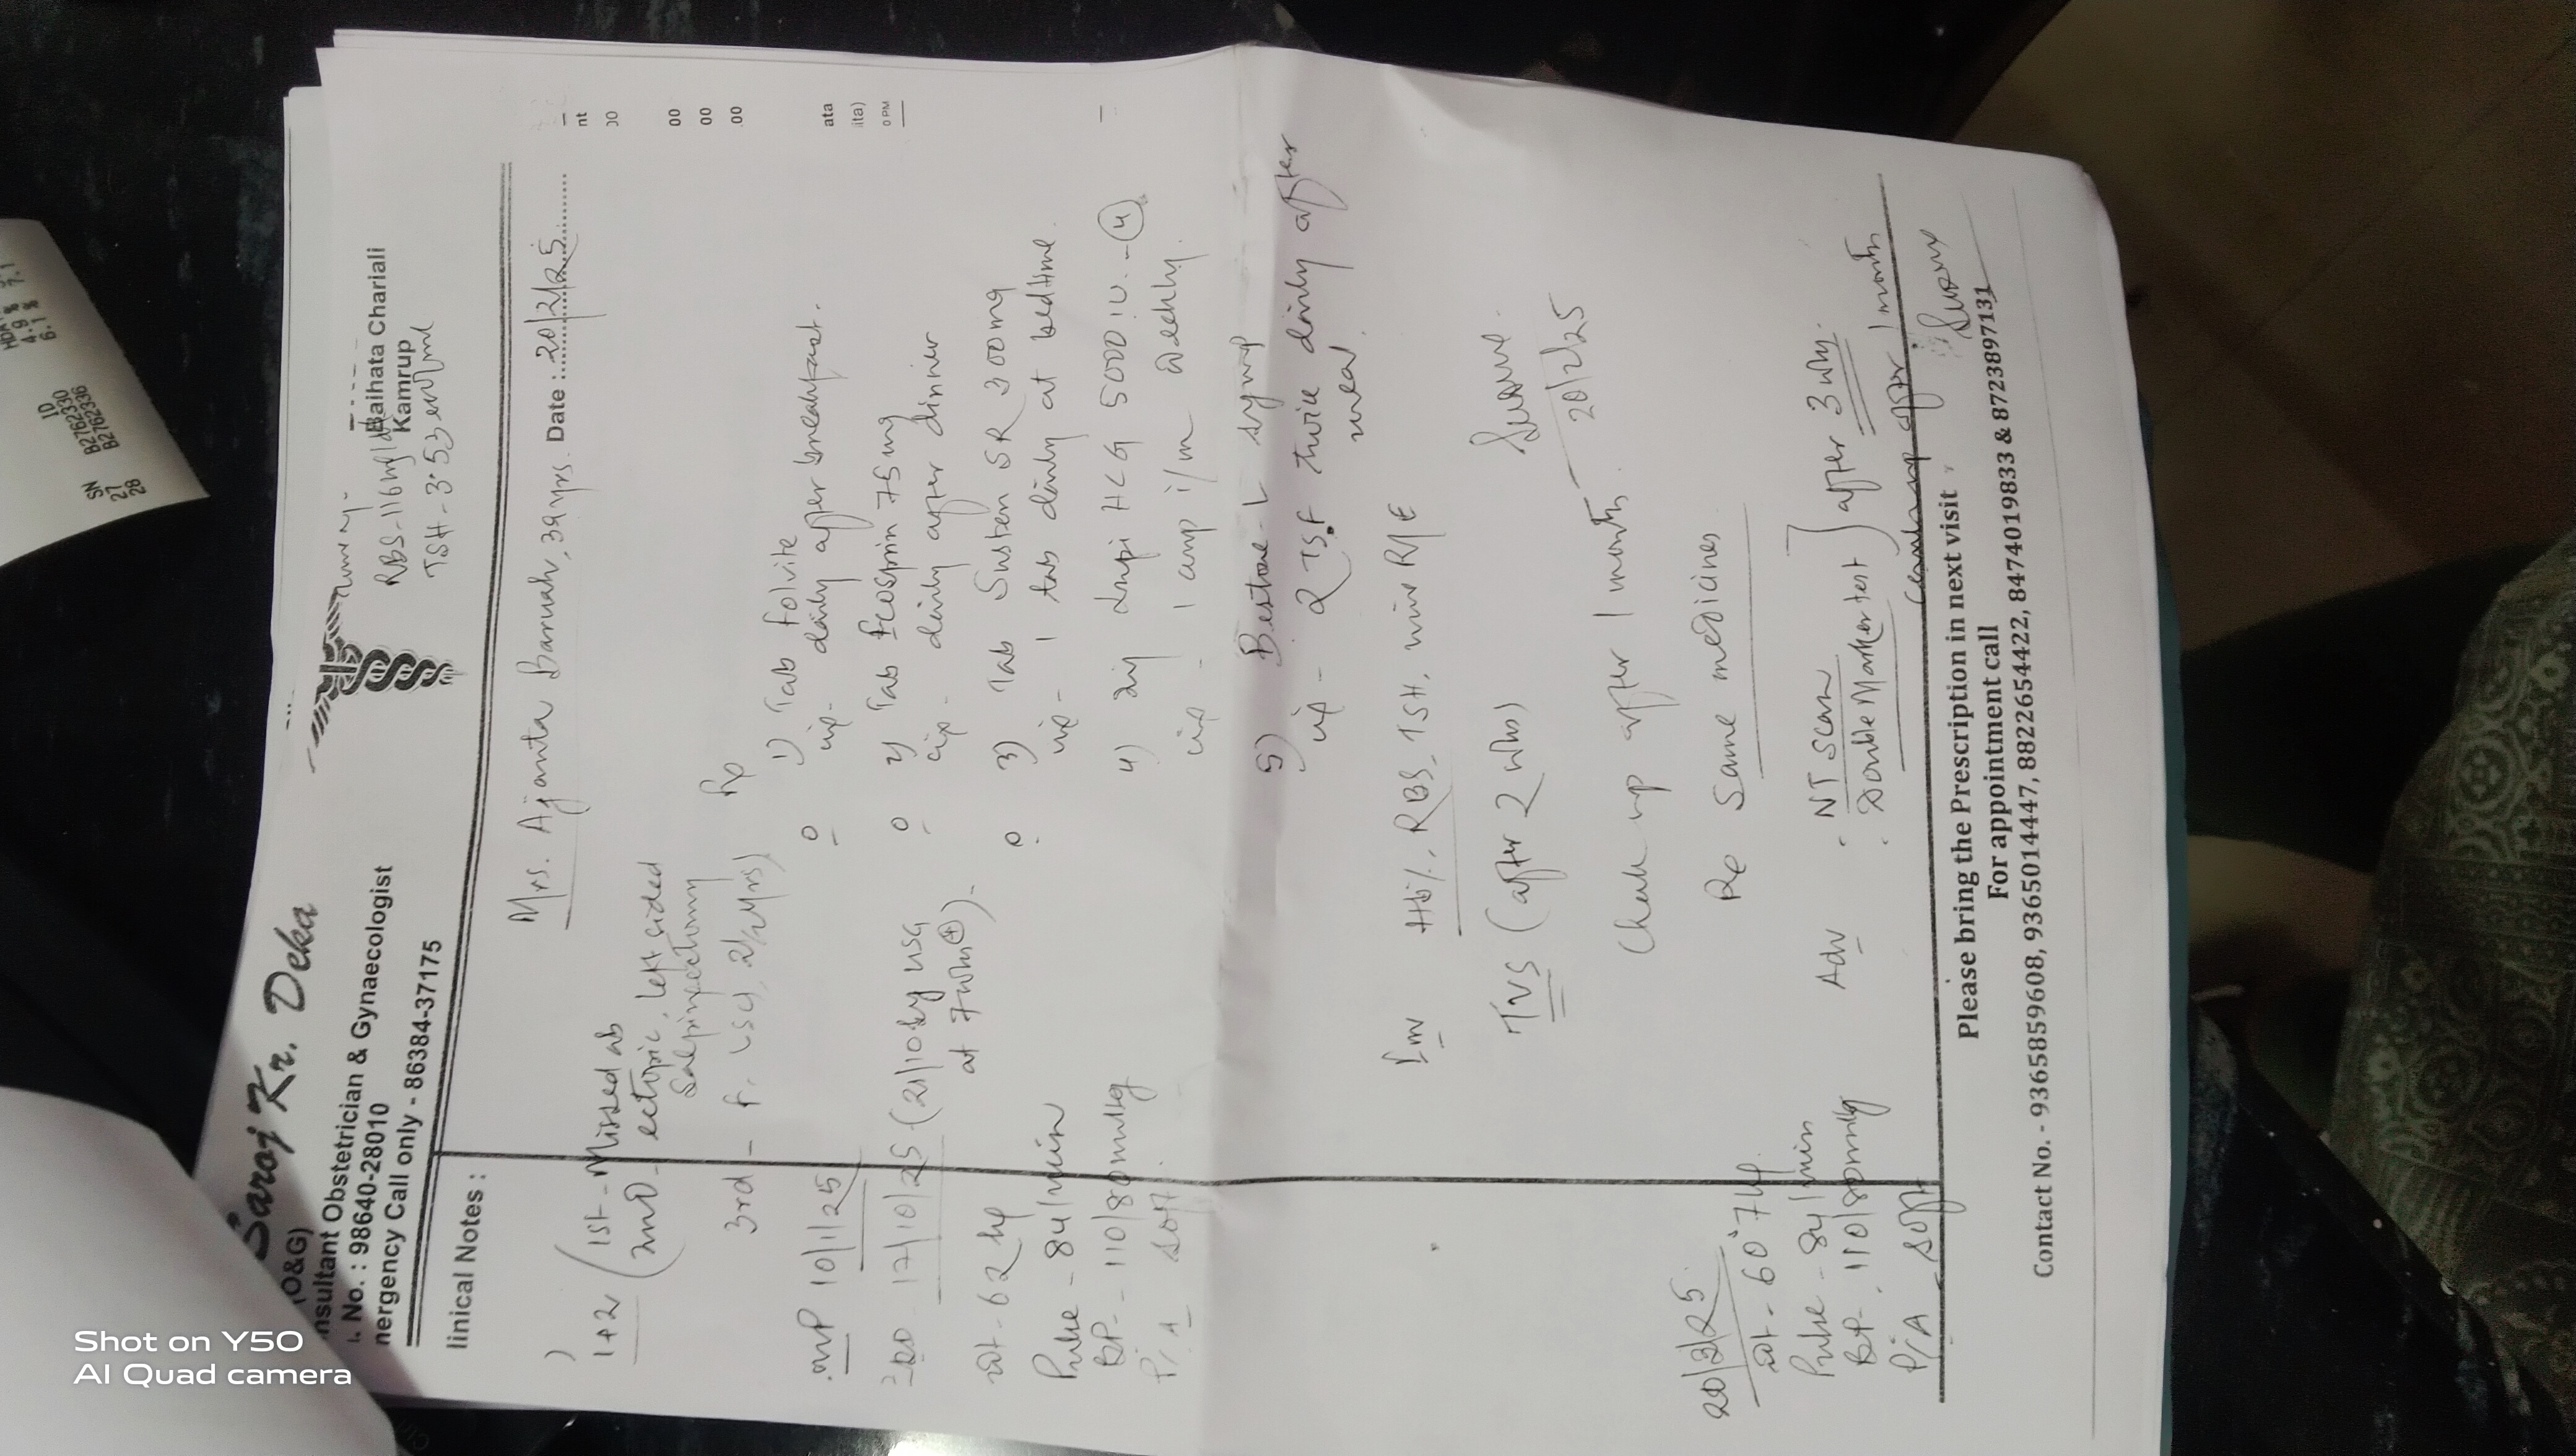 Saroj Kr. Deka
(O&G)
nsultant Obstetrician & Gynaecologist
. No. : 98640-28010
nergency Call only - 86384-37175
Baihata Chariali
Kamrup
RBS-116mg/dl
TSH-3.53
linical Notes :
Mrs. Ajanta Baruah, 39yrs. Date : 20/2/25
1+2 (1st-Missed ab
2nd-ectopic, left sided
Salpingectomy
3rd - F, LSCS, 2½yrs)
LMP 10/1/25
EDD- 17/10/25 (21/10 by USG
at 7wks)
wt-62kg
Pulse-84/min
BP-110/80mmHg
P/A soft.
Rp
1) Tab Folvite
daily after breakfast.
2) Tab Ecosprin 75mg
daily after dinner
3) Tab Susten SR 300mg
1 tab daily at bedtime.
4) inj HCG 5000 IU. - 4
1 amp i/m weekly.
5) syrup
2 TSF twice daily after
meal.
Inv Hb%, RBS, TSH, R/E
TVS (after 2 wks)
20/2/25
Check up after 1 month.
20/3/25
wt-60.74kg
Pulse-84/min
BP-110/80mmHg
P/A-soft
Rp Same medicines
Adv - NT Scan
- Double Marker test } after 3 wks.
Check up after 1 month
Please bring the Prescription in next visit
For appointment call
Contact No. - 9365859608, 9365014447, 8822654422, 8474019833 & 8723897131
SN ID
27 B2762330
28 B2762336
4.9
6.1
7.1
nt
00
00
00
.00
ata
ita)
0 PM
Shot on Y50
AI Quad camera